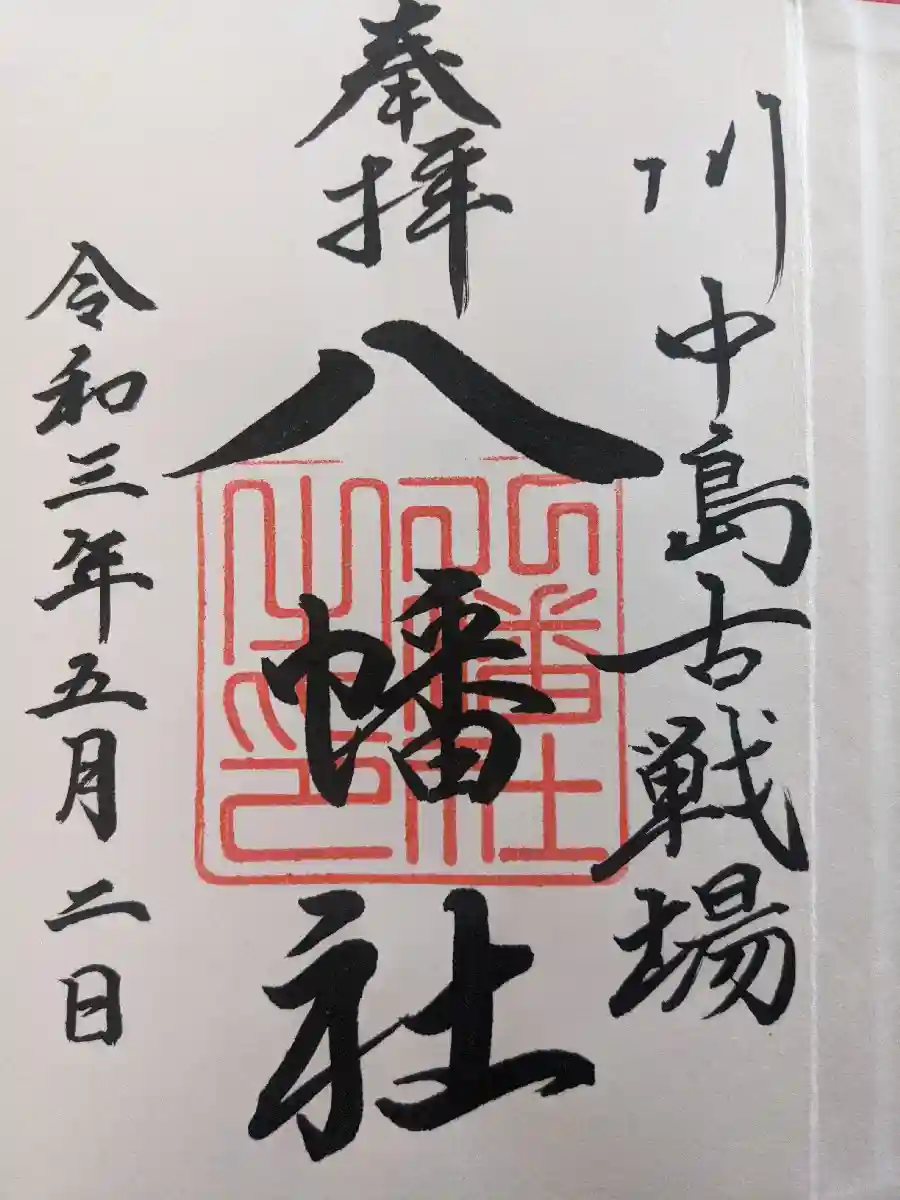 川中島古戦場
奉拝
八幡社
令和三年五月二日